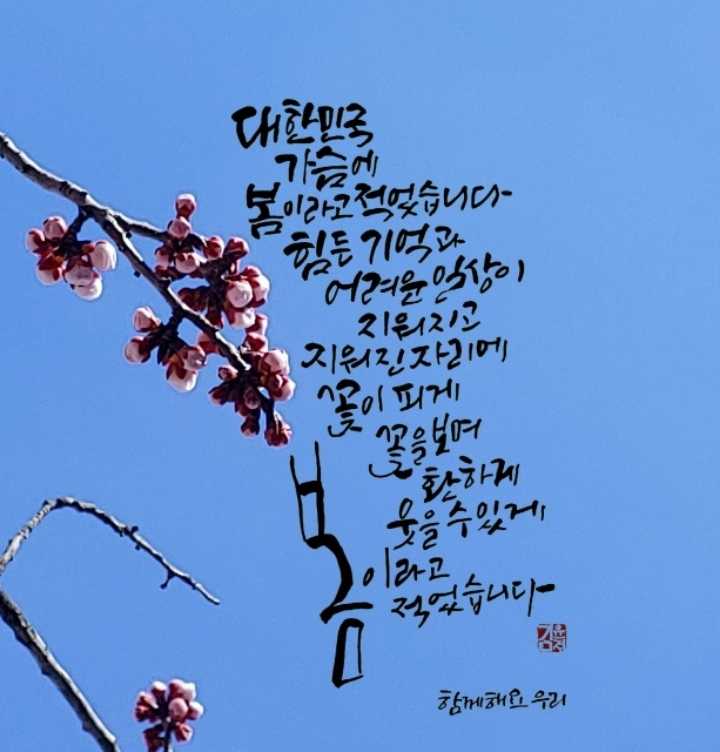 대한민국
가슴에
봄이라고 적었습니다
힘든 기억과
어려운 일상이
지워지고
지워진 자리에
꽃이 피게
꽃을 보며
환하게
웃을 수 있게
봄이라고
적었습니다
함께해요 우리